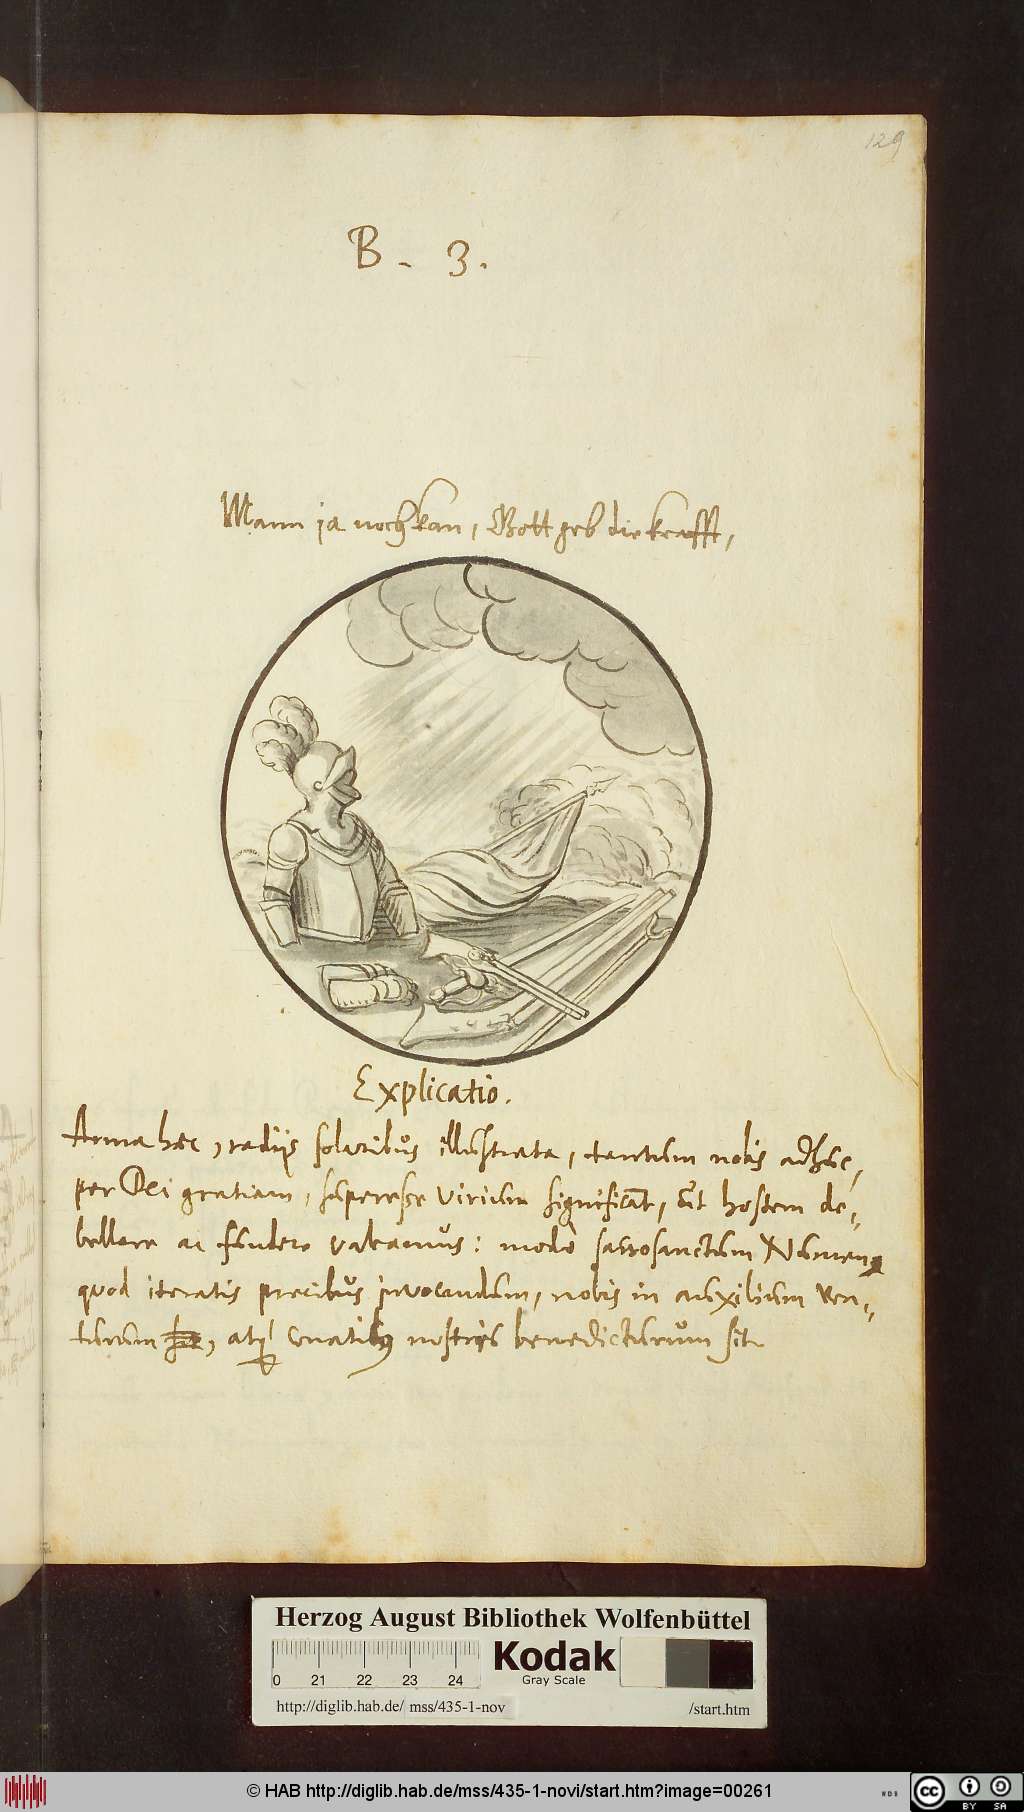 129
B. 3.
Mann ja noch kan, Gott geb die krafft,
Explicatio.
Arma hæc, radijs solaribus illustrata, tantum nobis adhuc,
per Dei gratiam, superesse virium significāt, ut hostem de=
bellare ac fundere valeamus: modò sacrosanctum Numen
quod iteratis precibus invocandum, nobis in auxilium ven=
turum, atq conatibus nostris benedicturum sit
Herzog August Bibliothek Wolfenbüttel
0 21 22 23 24
Kodak
Gray Scale
http://diglib.hab.de/ mss/435-1-nov /start.htm
© HAB http://diglib.hab.de/mss/435-1-novi/start.htm?image=00261
WDB
cc BY SA